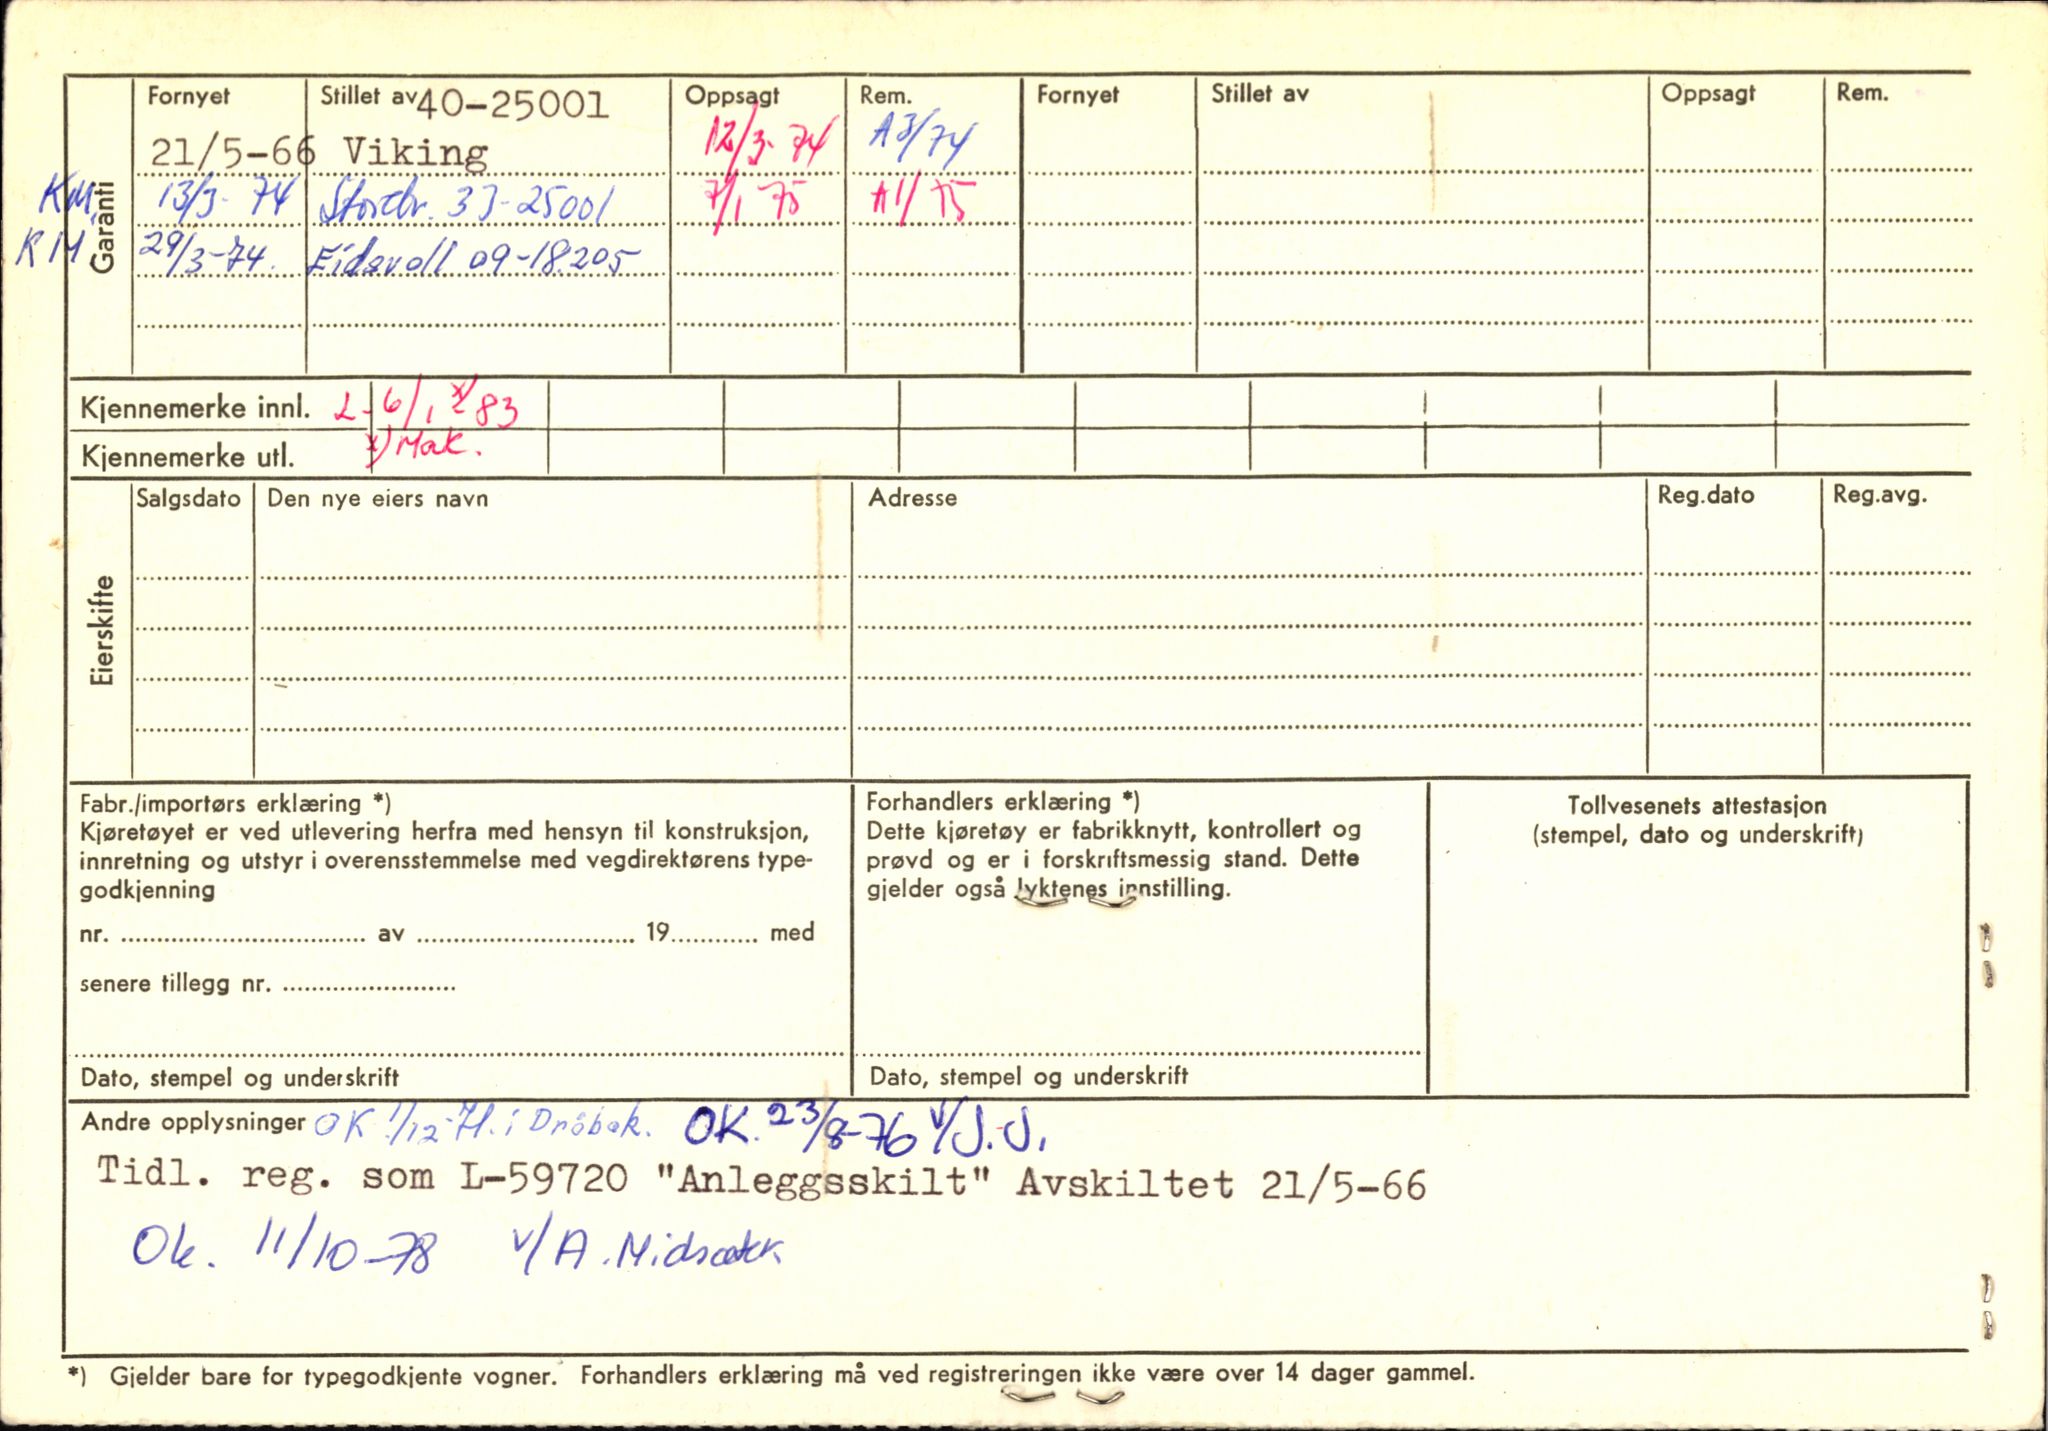 Fornyet Stillet av 40-25001 Oppsagt Rem. Fornyet Stillet av Oppsagt Rem.
21/5-66 Viking 12/3-74 A3/74
Garanti
KM 13/3-74 Storebr. 33-25001 7/1 75 A1/75
KM 29/3-74. Eidsvoll 09-18205
Kjennemerke innl. L- 6/1 x/83
Kjennemerke utl. x) Mak.
Eierskifte
Salgsdato Den nye eiers navn Adresse Reg.dato Reg.avg.
Fabr./importørs erklæring *)
Kjøretøyet er ved utlevering herfra med hensyn til konstruksjon,
innretning og utstyr i overensstemmelse med vegdirektørens type-
godkjenning
nr. av 19 med
senere tillegg nr.
Dato, stempel og underskrift
Forhandlers erklæring *)
Dette kjøretøy er fabrikknytt, kontrollert og
prøvd og er i forskriftsmessig stand. Dette
gjelder også lyktenes innstilling.
Dato, stempel og underskrift
Tollvesenets attestasjon
(stempel, dato og underskrift)
Andre opplysninger OK 1/12-71. i Drøbak. OK. 23/8-76 v/J.J.
Tidl. reg. som L-59720 "Anleggsskilt" Avskiltet 21/5-66
Ok. 11/10-78 v/A.
*) Gjelder bare for typegodkjente vogner. Forhandlers erklæring må ved registreringen ikke være over 14 dager gammel.